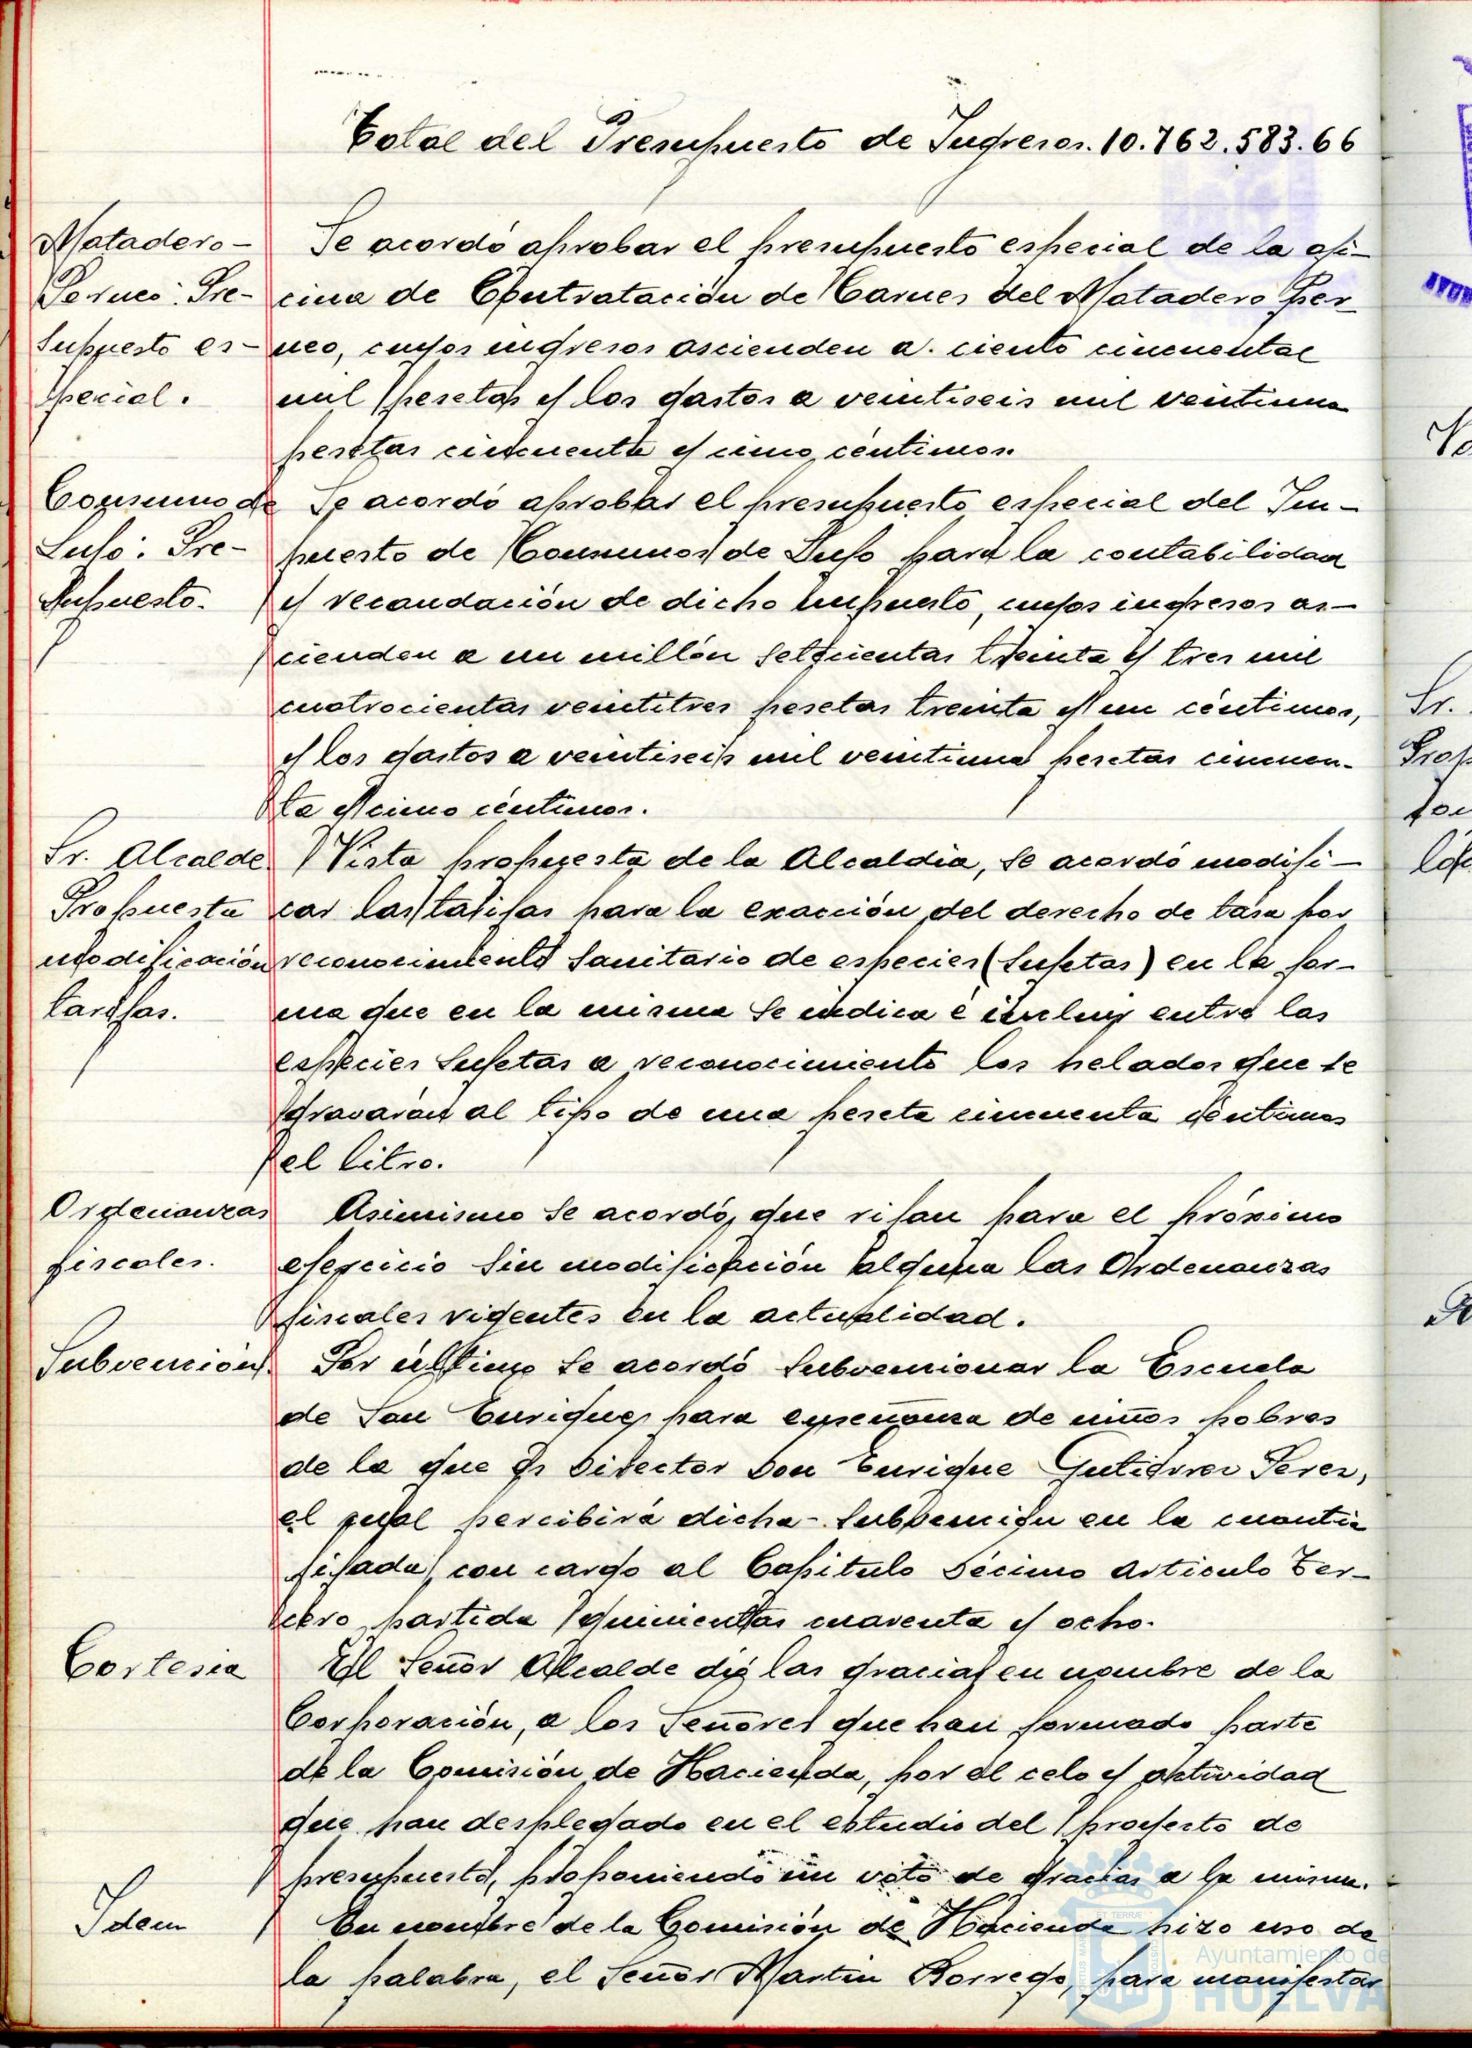 Total del Presupuesto de Ingresos. 10.762.583.66
Matadero-
Porcuo: Pre-
supuesto es-
pecial.
Se acordó aprobar el presupuesto especial de la ofi-
cina de Contratación de Carnes del Matadero Por-
cuo, cuyos ingresos ascienden a ciento cincuenta
mil pesetas y los gastos a veintiseis mil veintiuna
pesetas cincuenta y cinco céntimos.
Consumo de
Lujo: Pre-
supuesto.
Se acordó aprobar el presupuesto especial del Im-
puesto de Consumos de Lujo para la contabilidad
y recaudación de dicho impuesto, cuyos ingresos as-
cienden a un millón setecientas treinta y tres mil
cuatrocientas veintitres pesetas treinta y un céntimos,
y los gastos a veintiseis mil veintiuna pesetas cincuen-
ta y cinco céntimos.
Sr. Alcalde
Propuesta
modificación
tarifas.
Vista propuesta de la Alcaldia, se acordó modifi-
car las tarifas para la exacción del derecho de tasa por
reconocimiento sanitario de especies (sujetas) en la for-
ma que en la misma se indica é incluir entre las
especies sujetas a reconocimiento los helados que se
gravarán al tipo de una peseta cincuenta céntimos
el litro.
Ordenanzas
fiscales.
Asimismo se acordó, que rijan para el próximo
ejercicio sin modificación alguna las Ordenanzas
fiscales vigentes en la actualidad.
Subvención.
Por último se acordó subvencionar la Escuela
de San Enrique, para enseñanza de niños pobres
de la que es Director Don Enrique Gutiérrez Perez,
el cual percibirá dicha subvención en la cuantía
fijada, con cargo al Capitulo Décimo Articulo Ter-
cero, partida quinientas cuarenta y ocho.
Cortesia
El Señor Alcalde dió las gracias en nombre de la
Corporación, a los Señores que han formado parte
de la Comisión de Hacienda, por el celo y actividad
que han desplegado en el estudio del proyecto de
presupuesto, proponiendo un voto de gracias a la misma.
Idem
En nombre de la Comisión de Hacienda hizo uso de
la palabra, el Señor Martin Borrego, para manifestar
Ayuntamiento de
HUELVA
Sr.